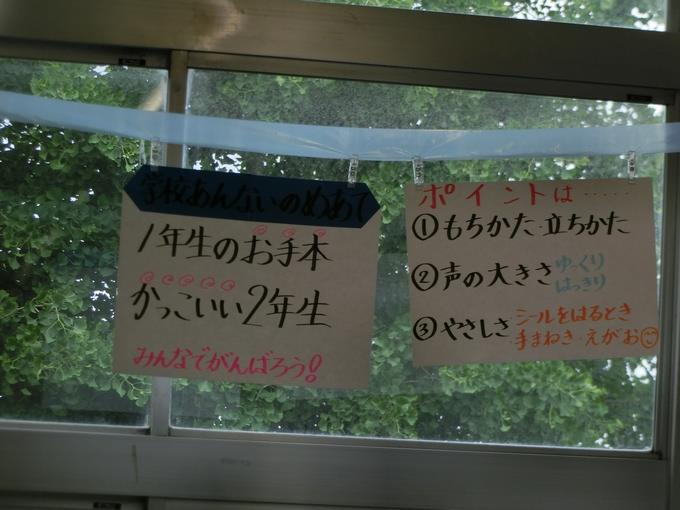 学校あんないのめあて
1年生のお手本
かっこいい2年生
みんなでがんばろう!
ポイントは・・・・・
①もちかた・立ちかた
②声の大きさ ゆっくり
はっきり
③やさしさ シールをはるとき
手まねき・えがお